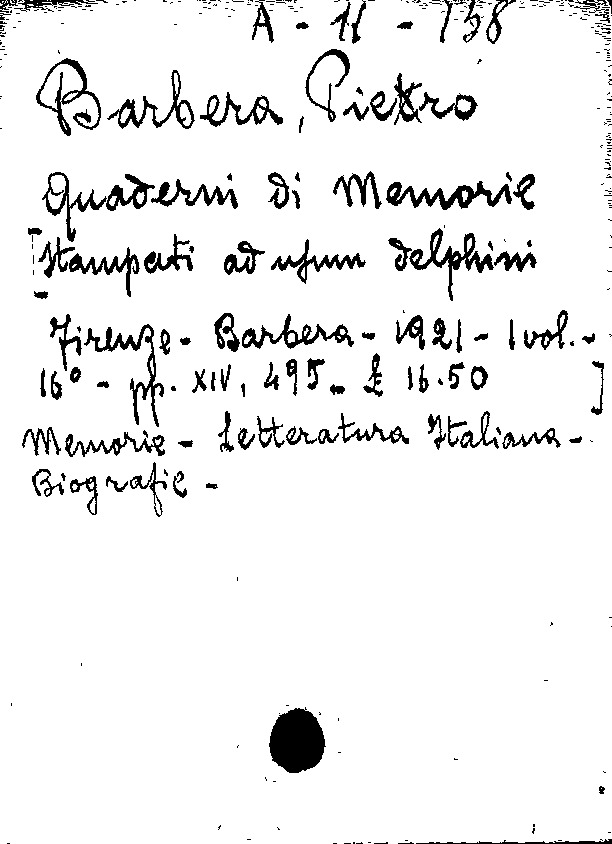 A - 11 - 138
Barbera, Pietro
Quaderni di Memorie
[Stampati ad usum delphini
Firenze - Barbera - 1921 - 1 vol. -
16° - pp. XIV, 495 - £ 16.50 ]
Memorie - Letteratura Italiana -
Biografie -